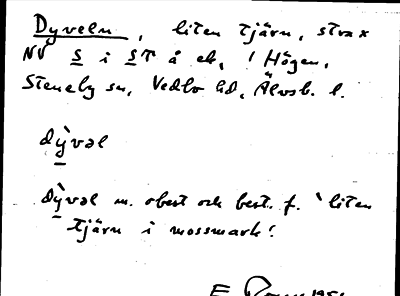 Dyveln, liten tjärn, strax
NV S i ST å ek, 1 Högen,
Steneby sn, Vedbo hd, Älvsb. l.
dỳ̱vəl
dỳ̱vəl m. obest och best. f. ‛liten
tjärn i mossmark’.